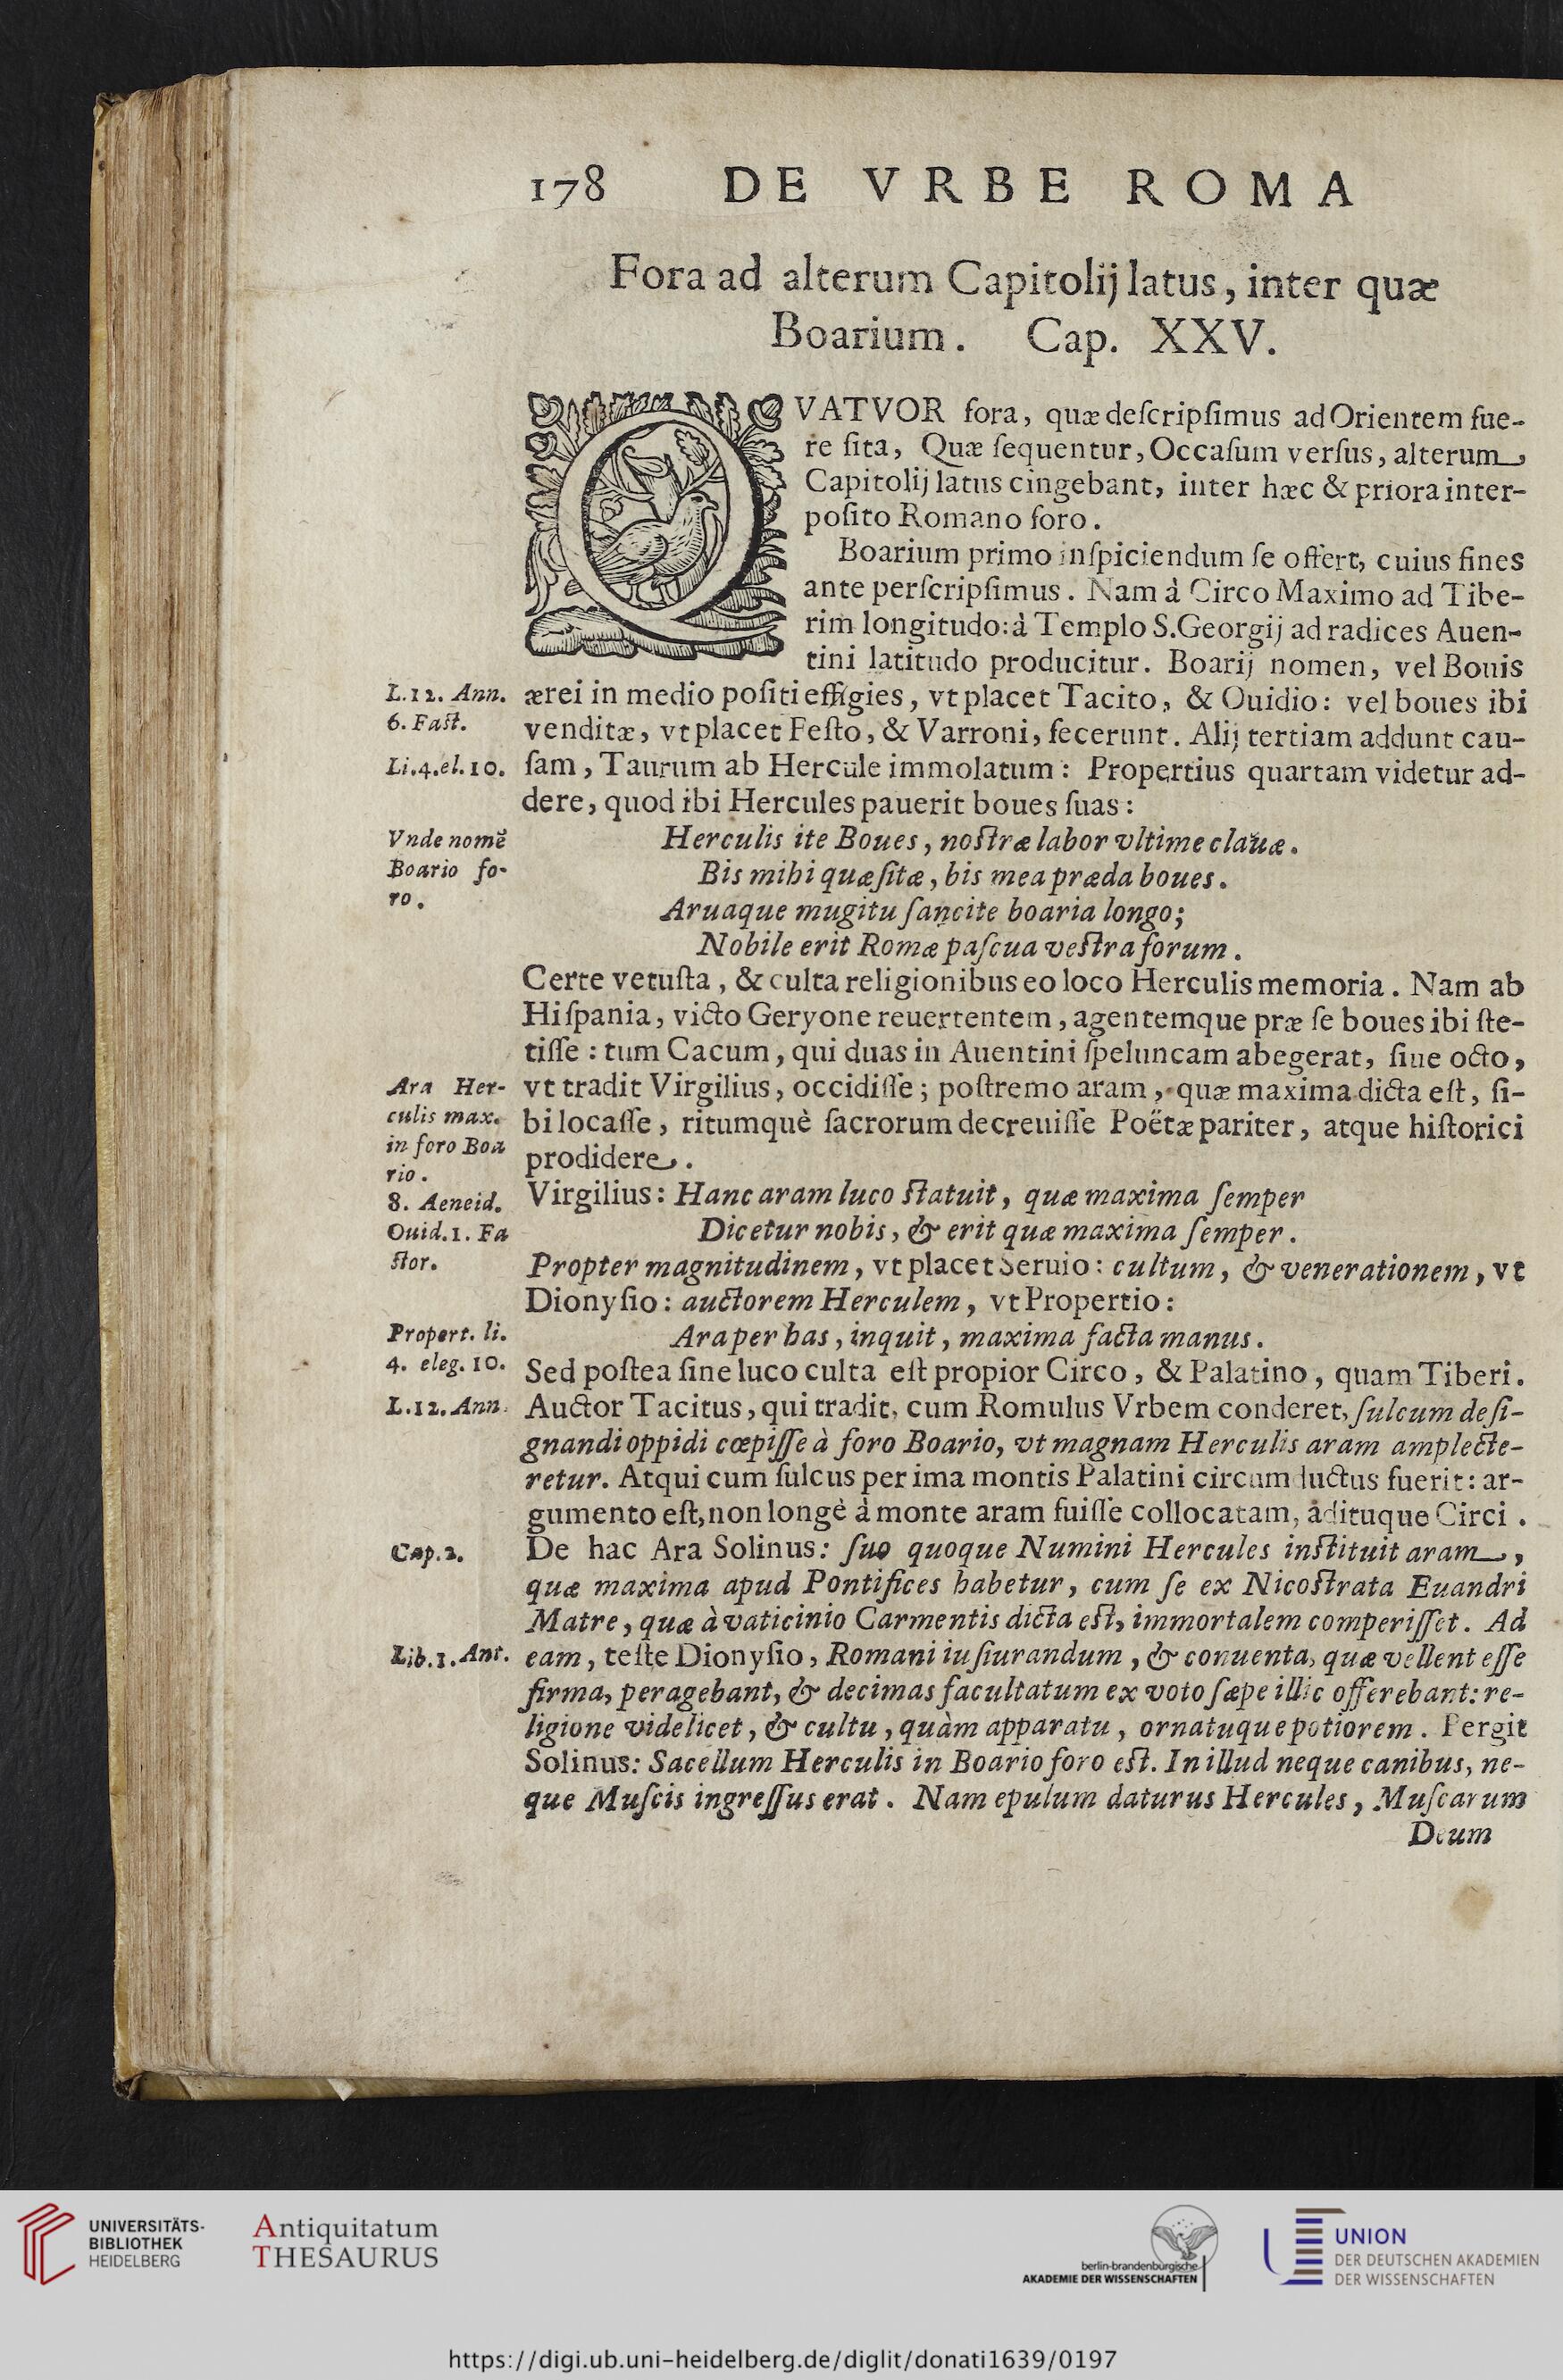 178 DE VRBE ROMA
Fora ad alterum Capitolij latus, inter quæ
Boarium. Cap. XXV.
QVATVOR fora, quæ deſcripſimus ad Orientem fue-
re ſita, Quæ ſequentur, Occaſum verſus, alterum
Capitolij latus cingebant, inter hæc & priora inter-
poſito Romano foro.
Boarium primo inſpiciendum ſe offert, cuius fines
ante perſcripſimus. Nam à Circo Maximo ad Tibe-
rim longitudo: à Templo S. Georgij ad radices Auen-
tini latitudo producitur. Boarij nomen, vel Bouis
L.12. Ann.
6. Faſt.
ærei in medio poſiti effigies, vt placet Tacito, & Ouidio: vel boues ibi
venditæ, vt placet Feſto, & Varroni, fecerunt. Alij tertiam addunt cau-
Li.4.el.10.
ſam, Taurum ab Hercule immolatum: Propertius quartam videtur ad-
dere, quod ibi Hercules pauerit boues ſuas:
Vnde nomẽ
Boario fo-
ro.
Herculis ite Boues, noſtræ labor vltime clauæ.
Bis mihi quæſitæ, bis mea præda boues.
Aruaque mugitu ſancite boaria longo;
Nobile erit Romæ paſcua veſtra forum.
Certe vetuſta, & culta religionibus eo loco Herculis memoria. Nam ab
Hiſpania, victo Geryone reuertentem, agentemque præ ſe boues ibi ſte-
tiſſe: tum Cacum, qui duas in Auentini ſpeluncam abegerat, ſiue octo,
Ara Her-
culis max.
in foro Boa
rio.
8. Aeneid.
Ouid.1. Fa
ſtor.
vt tradit Virgilius, occidiſſe; poſtremo aram, quæ maxima dicta eſt, ſi-
bi locaſſe, ritumquè ſacrorum decreuiſſe Poëtæ pariter, atque hiſtorici
prodidere.
Virgilius: Hanc aram luco ſtatuit, quæ maxima ſemper
Dicetur nobis, & erit quæ maxima ſemper.
Propter magnitudinem, vt placet Seruio: cultum, & venerationem, vt
Dionyſio: auctorem Herculem, vt Propertio:
Propert. li.
4. eleg. 10.
Ara per has, inquit, maxima facta manus.
Sed poſtea ſine luco culta eſt propior Circo, & Palatino, quam Tiberi.
L.12. Ann.
Auctor Tacitus, qui tradit, cum Romulus Vrbem conderet, ſulcum deſi-
gnandi oppidi cœpiſſe à foro Boario, vt magnam Herculis aram amplecte-
retur. Atqui cum ſulcus per ima montis Palatini circumductus fuerit: ar-
gumento eſt, non longè à monte aram fuiſſe collocatam, adituque Circi.
Cap.2.
De hac Ara Solinus: ſuo quoque Numini Hercules inſtituit aram,
quæ maxima apud Pontifices habetur, cum ſe ex Nicoſtrata Euandri
Matre, quæ à vaticinio Carmentis dicta eſt, immortalem comperiſſet. Ad
Lib.1. Ant.
eam, teſte Dionyſio, Romani iuſiurandum, & conuenta, quæ vellent eſſe
firma, peragebant, & decimas facultatum ex voto ſæpe illic offerebant: re-
ligione videlicet, & cultu, quàm apparatu, ornatuque potiorem. Pergit
Solinus: Sacellum Herculis in Boario foro eſt. In illud neque canibus, ne-
que Muſcis ingreſſus erat. Nam epulum daturus Hercules, Muſcarum
Deum
UNIVERSITÄTS-
BIBLIOTHEK
HEIDELBERG
Antiquitatum
THESAURUS
berlin-brandenburgische
AKADEMIE DER WISSENSCHAFTEN
UNION
DER DEUTSCHEN AKADEMIEN
DER WISSENSCHAFTEN
https://digi.ub.uni-heidelberg.de/diglit/donati1639/0197